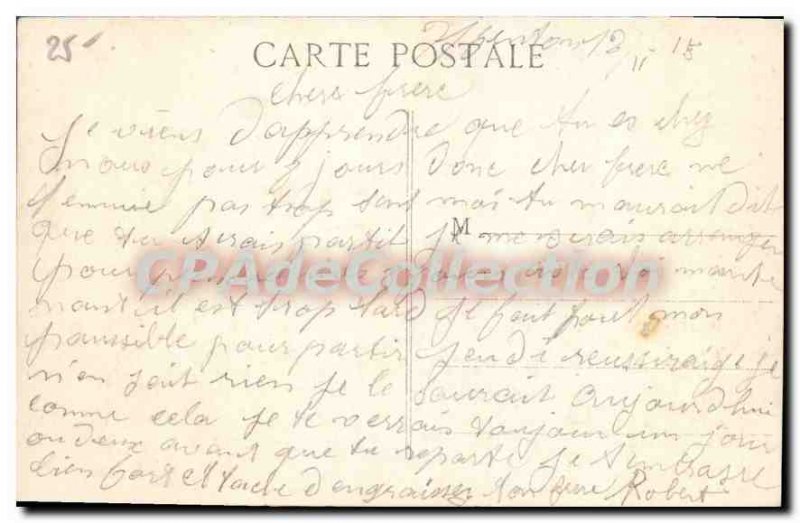 25
12 11 15
CARTE POSTALE
chere frere
Je viens d'apprendre que tu es chez
nous pour 2 jours donc cher frere ne
t'ennuie pas trop sent moi tu mauroit dit
que tu serais partit je me serais arranger
pour avec toi mainte
nant il est trop tard Je fait tout mon
possible pour partir jeudi reussiraije je
n'en sait rien je le saurait aujourdhui
comme cela je te verrais toujour un jour
ou deux avant que tu reparte Je t'embrasse
bien fort et tache d'engraisser ton frere Robert
M
CPAdeCollection